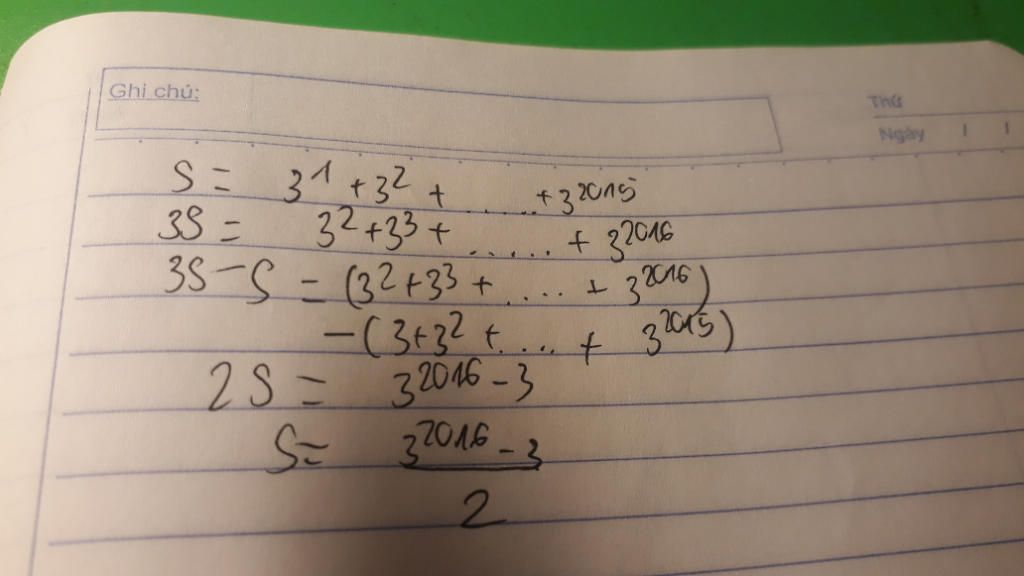 Ghi chú:
Thứ
Ngày / /
S = 3^1 + 3^2 + ...... + 3^2015
3S = 3^2 + 3^3 + ...... + 3^2016
3S - S = (3^2 + 3^3 + .... + 3^2016)
- (3 + 3^2 + .... + 3^2015)
2S = 3^2016 - 3
S = \frac{3^2016 - 3}{2}